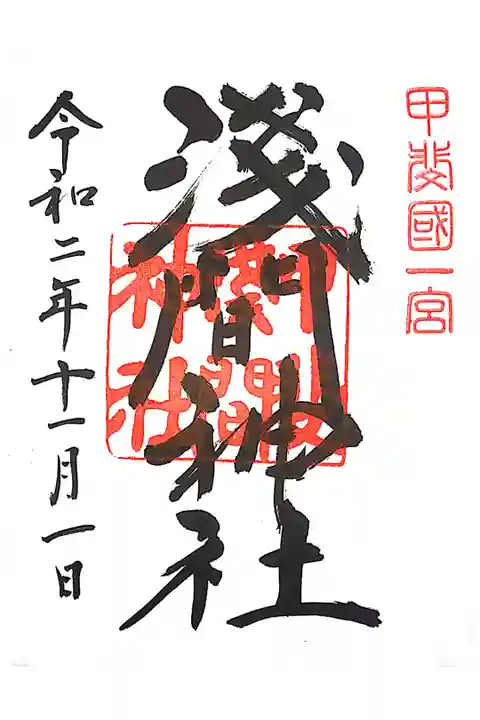 甲斐國一宮
淺間神社
令和二年十一月一日